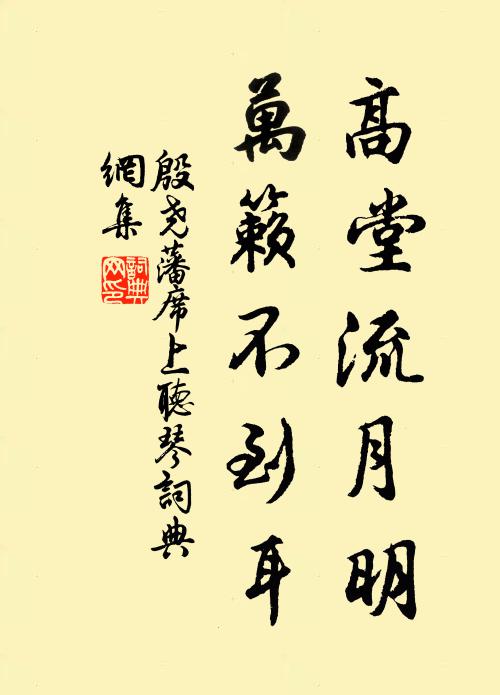 高堂流月明
萬籟不到耳
殷尧藩席上聽琴詞典
網集
詞典
网印